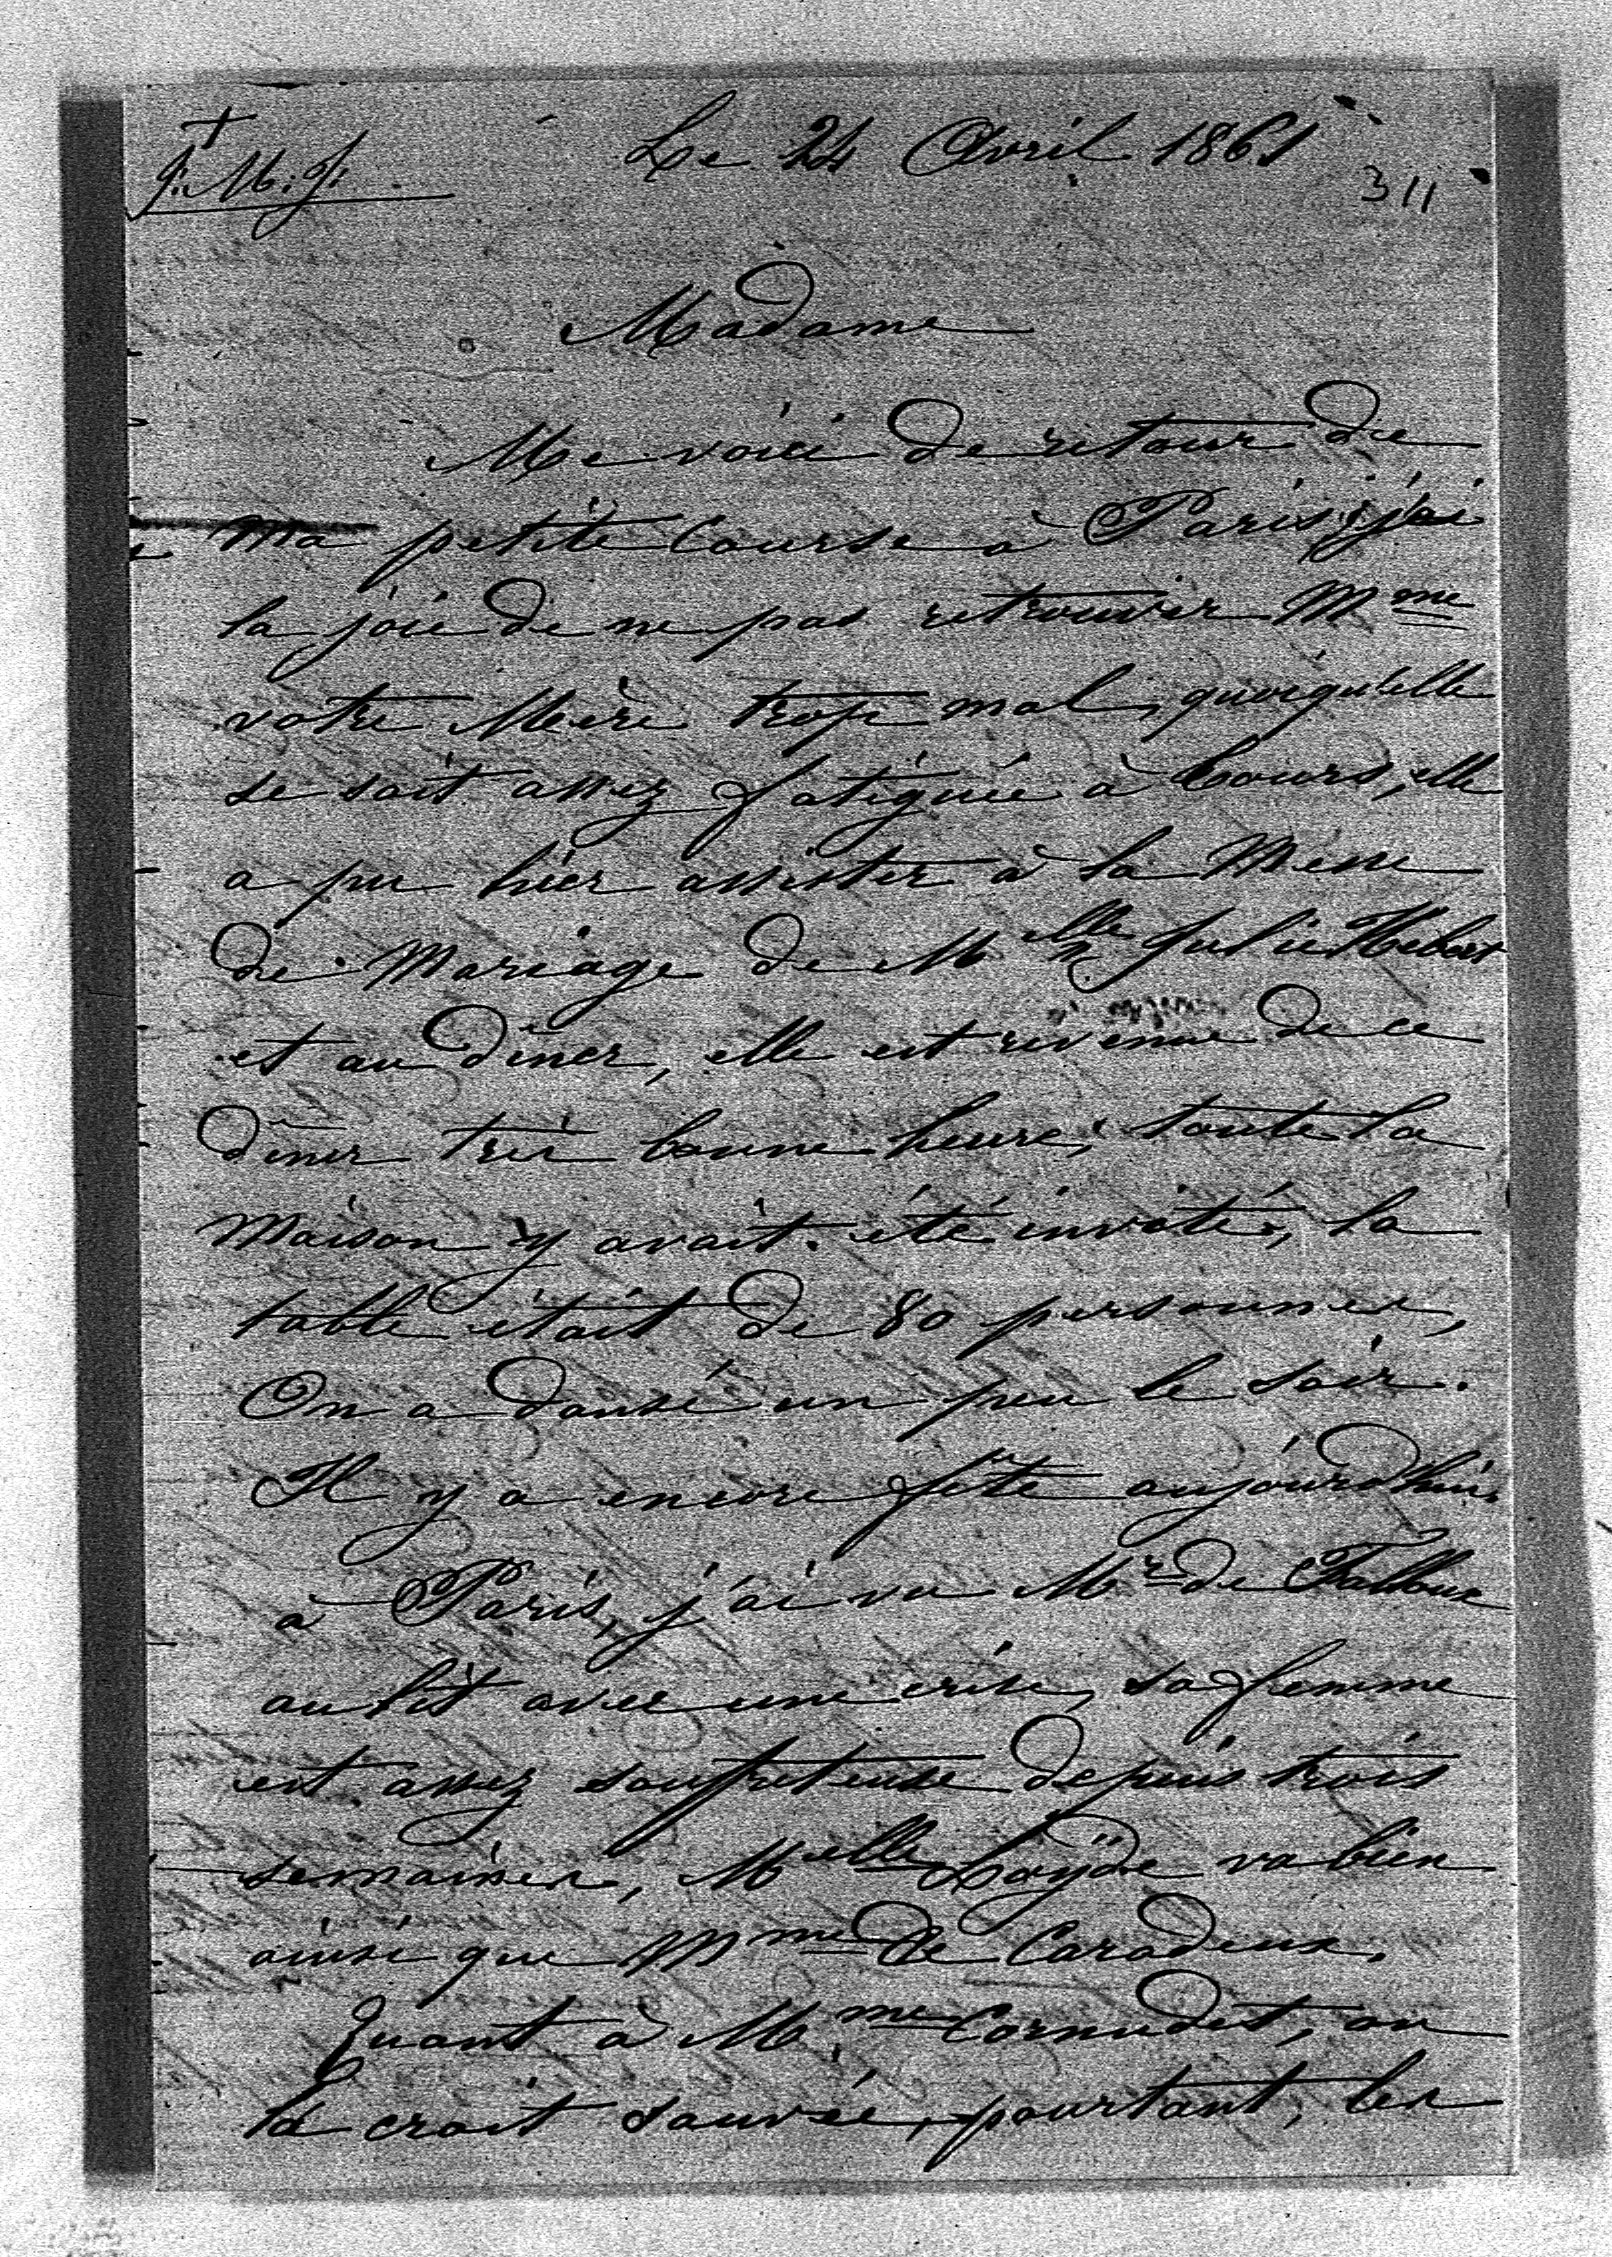 +
J. M. J.
Le 24 Avril 1861
311
Madame
Me voici de retour de
ma petite course à Paris; j'ai
la joie de ne pas retrouver Mme
votre Mère trop mal, quoiqu'elle
se soit assez fatiguée à Tours, elle
a pu hier assister à la Messe
de Mariage de Melle Julie
et au dîner, elle est revenue de ce
dîner très bonne heure; toute la
maison y avait été invitée, la
table était de 80 personnes,
On a dansé un peu le soir.
Il y a encore fête aujourd'hui.
à Paris, j'ai vu Mr de Falloux
au lit avec une crise, sa femme
est assez souffreteuse depuis trois
semaines, Melle Loyde va bien
ainsi que Mme de Caradeux.
Quant à Mme Cornudet, on
la croit sauvée, pourtant, les